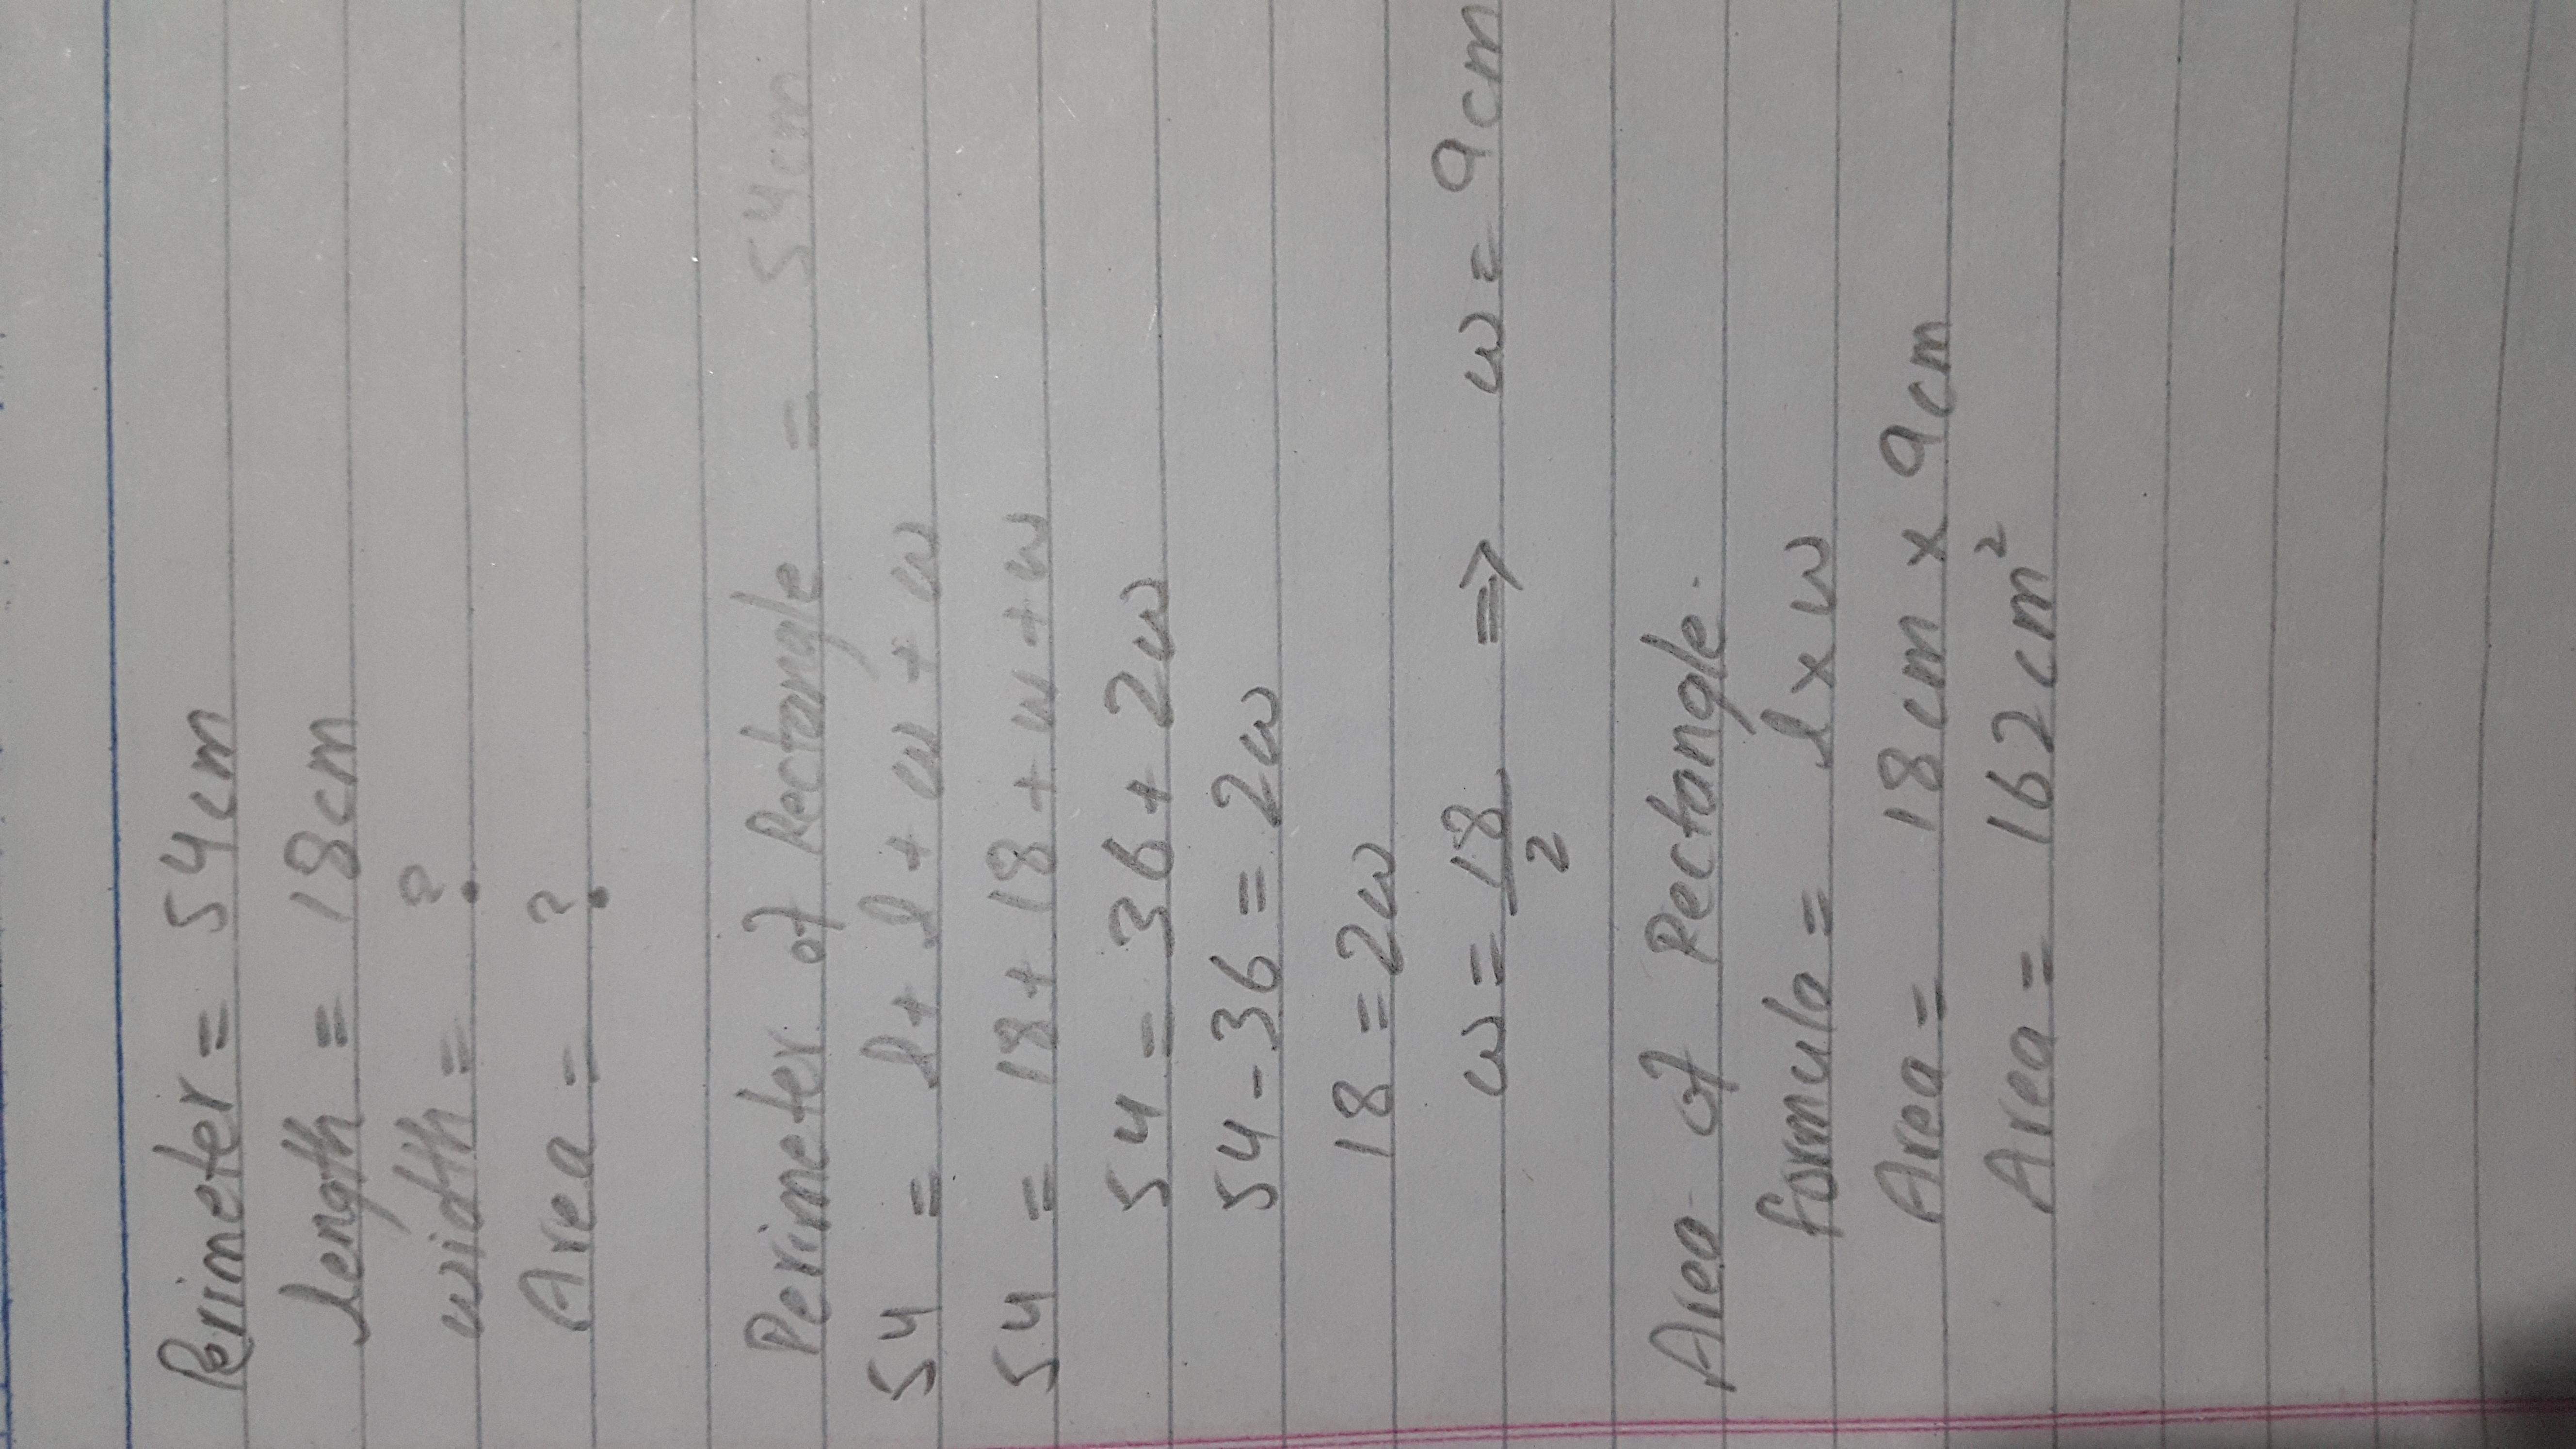 Perimeter = 54cm
length = 18cm
width = ?
Area = ?
Perimeter of Rectangle = 54cm
54 = l + l + w + w
54 = 18 + 18 + w + w
54 = 36 + 2w
54 - 36 = 2w
18 = 2w
w = 18/2 => w = 9cm
Area of Rectangle.
formula = l x w
Area = 18cm x 9cm
Area = 162cm²